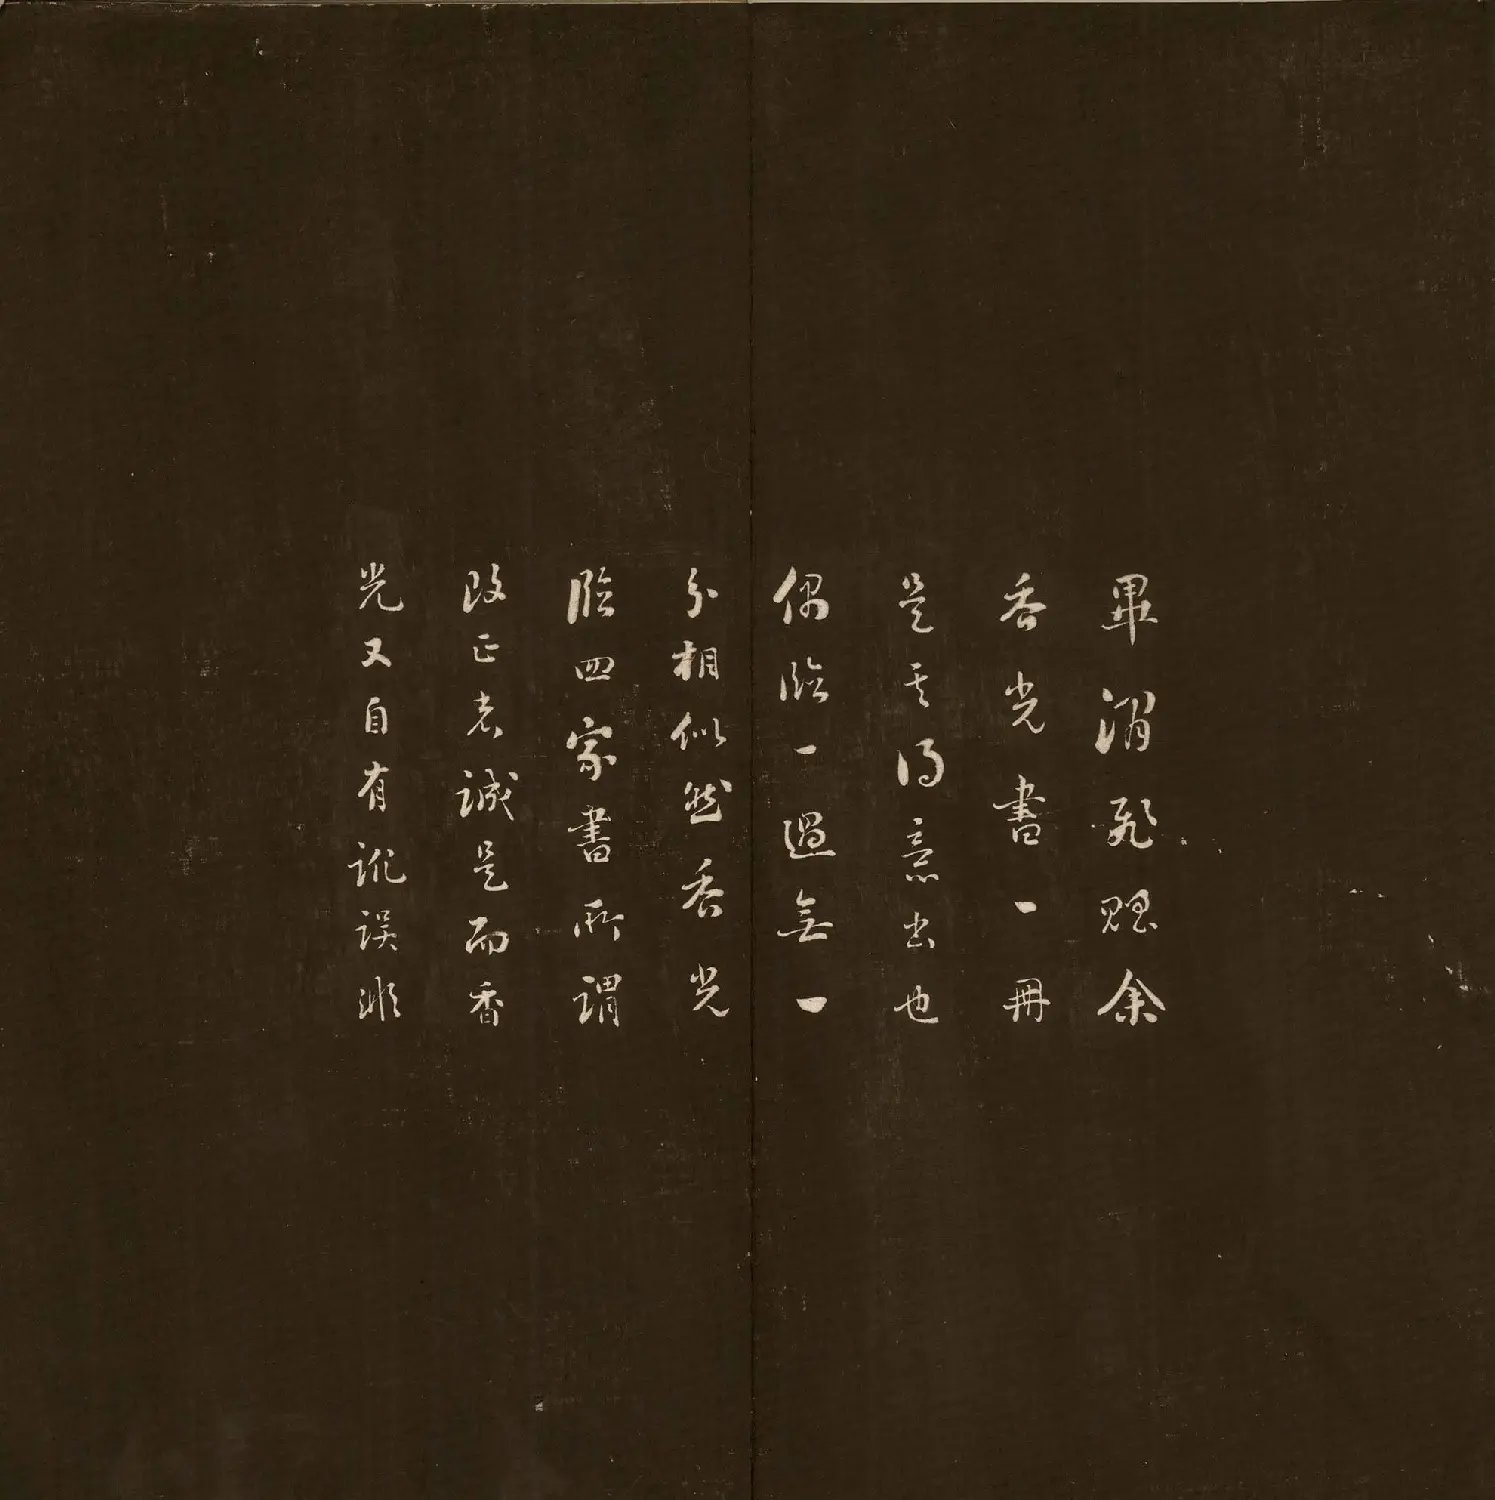 畢澗飛貺余
香光書一冊
是其得意書也
偶臨一過無一
分相似然香光
臨四家書所謂
改正者誠是而香
光又自有訛誤非